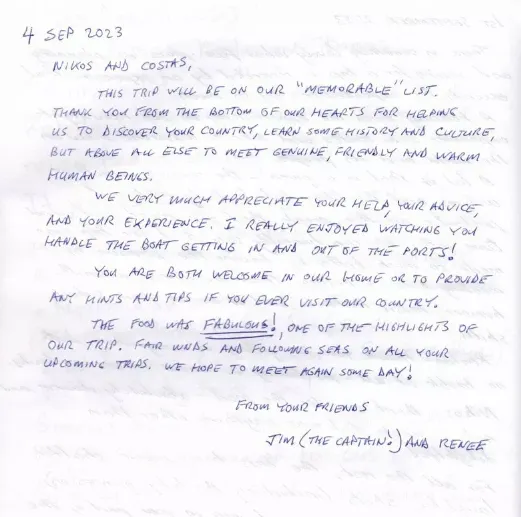 4 SEP 2023
NIKOS AND COSTAS,
THIS TRIP WILL BE ON OUR "MEMORABLE" LIST.
THANK YOU FROM THE BOTTOM OF OUR HEARTS FOR HELPING
US TO DISCOVER YOUR COUNTRY, LEARN SOME HISTORY AND CULTURE,
BUT ABOVE ALL ELSE TO MEET GENUINE, FRIENDLY AND WARM
HUMAN BEINGS.
WE VERY MUCH APPRECIATE YOUR HELP, YOUR ADVICE,
AND YOUR EXPERIENCE. I REALLY ENJOYED WATCHING YOU
HANDLE THE BOAT GETTING IN AND OUT OF THE PORTS!
YOU ARE BOTH WELCOME IN OUR HOME OR TO PROVIDE
ANY HINTS AND TIPS IF YOU EVER VISIT OUR COUNTRY.
THE FOOD WAS FABULOUS!, ONE OF THE HIGHLIGHTS OF
OUR TRIP. FAIR WINDS AND FOLLOWING SEAS ON ALL YOUR
UPCOMING TRIPS. WE HOPE TO MEET AGAIN SOME DAY!
FROM YOUR FRIENDS
JIM (THE CAPTAIN!) AND RENEE